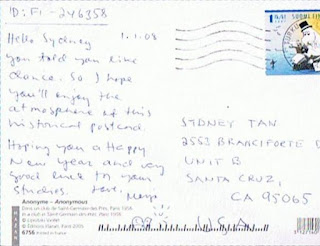 ID: FI-246358
1.1.08
Hello Sydney
you told you like
dance. So I hope
you'll enjoy the
atmosphere of this
historical postcard.
Hoping you a Happy
New Year and very
good luck to your
studies.
SUOMI FINLAND
SYDNEY TAN
2553 BRANCIFORTE D
UNIT B
SANTA CRUZ,
CA 95065
USA
Anonyme – Anonymous
Dans un club de Saint-Germain-des-Prés, Paris 1958.
In a club in Saint-Germain-des-Prés, Paris 1958.
HAZAN
6756 Printed in France